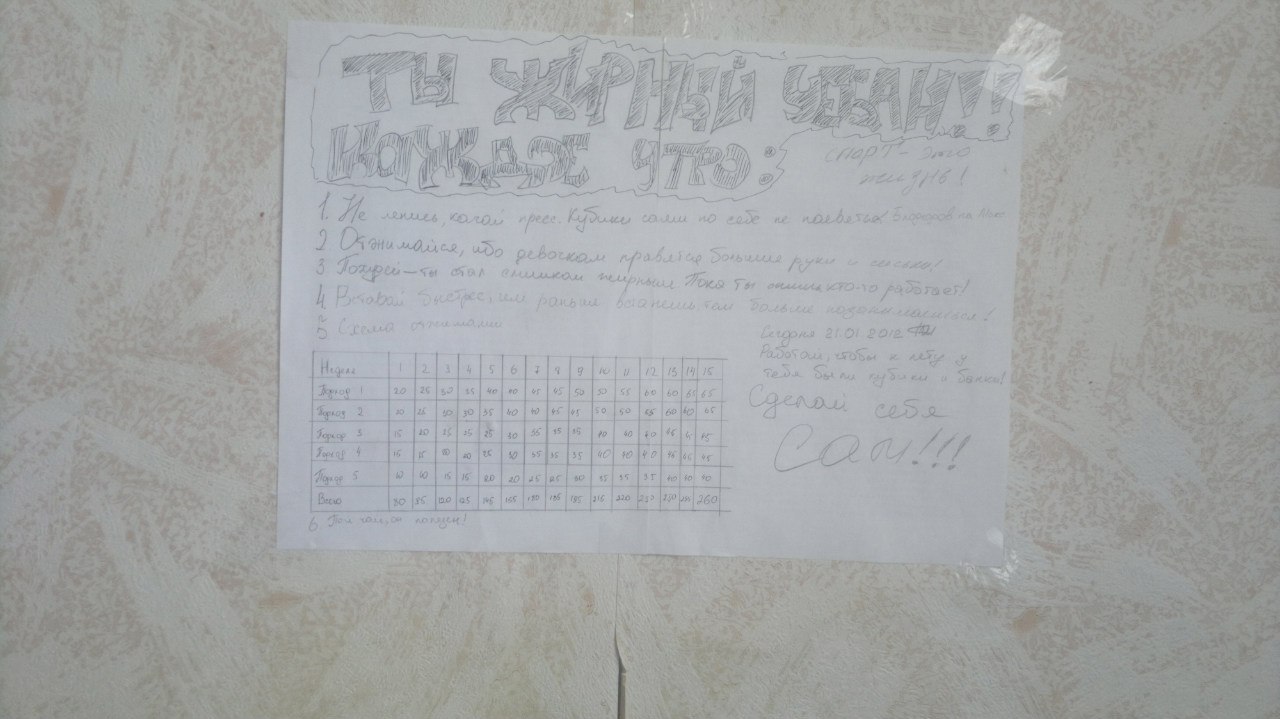 ТЫ ЖИРНЫЙ УЕБАН!!
КАЖДОЕ УТРО:
СПОРТ - это
жизнь!
1. Не ленись, качай пресс. Кубики сами по себе не появятся!
2. Отжимайся, ибо девочкам нравятся большие руки и сиськи!
3 Похудей - ты стал слишком жирным. Пока ты спишь кто-то работает!
4 Вставай быстрее, чем раньше встанешь тем больше позанимаешься!
5 Схема отжиманий
Сегодня 21.01.2012
Работай, чтобы к лету у
тебя были кубики и банки!
Сделай себя
Сам!!!
Неделя 1 2 3 4 5 6 7 8 9 10 11 12 13 14 15
Подход 1 20 25 30 35 40 40 45 45 50 50 55 60 60 65 65
Подход 2 20 25 30 30 35 40 40 45 45 50 50 55 60 60 65
Подход 3 15 20 25 25 25 30 35 35 35 40 40 40 45 45 45
Подход 4 15 15 20 20 25 30 35 35 35 40 40 40 45 45 45
Подход 5 10 10 15 15 20 20 25 25 30 35 35 35 40 40 40
Всего 80 95 120 125 145 165 180 185 195 215 220 230 250 255 260
6.